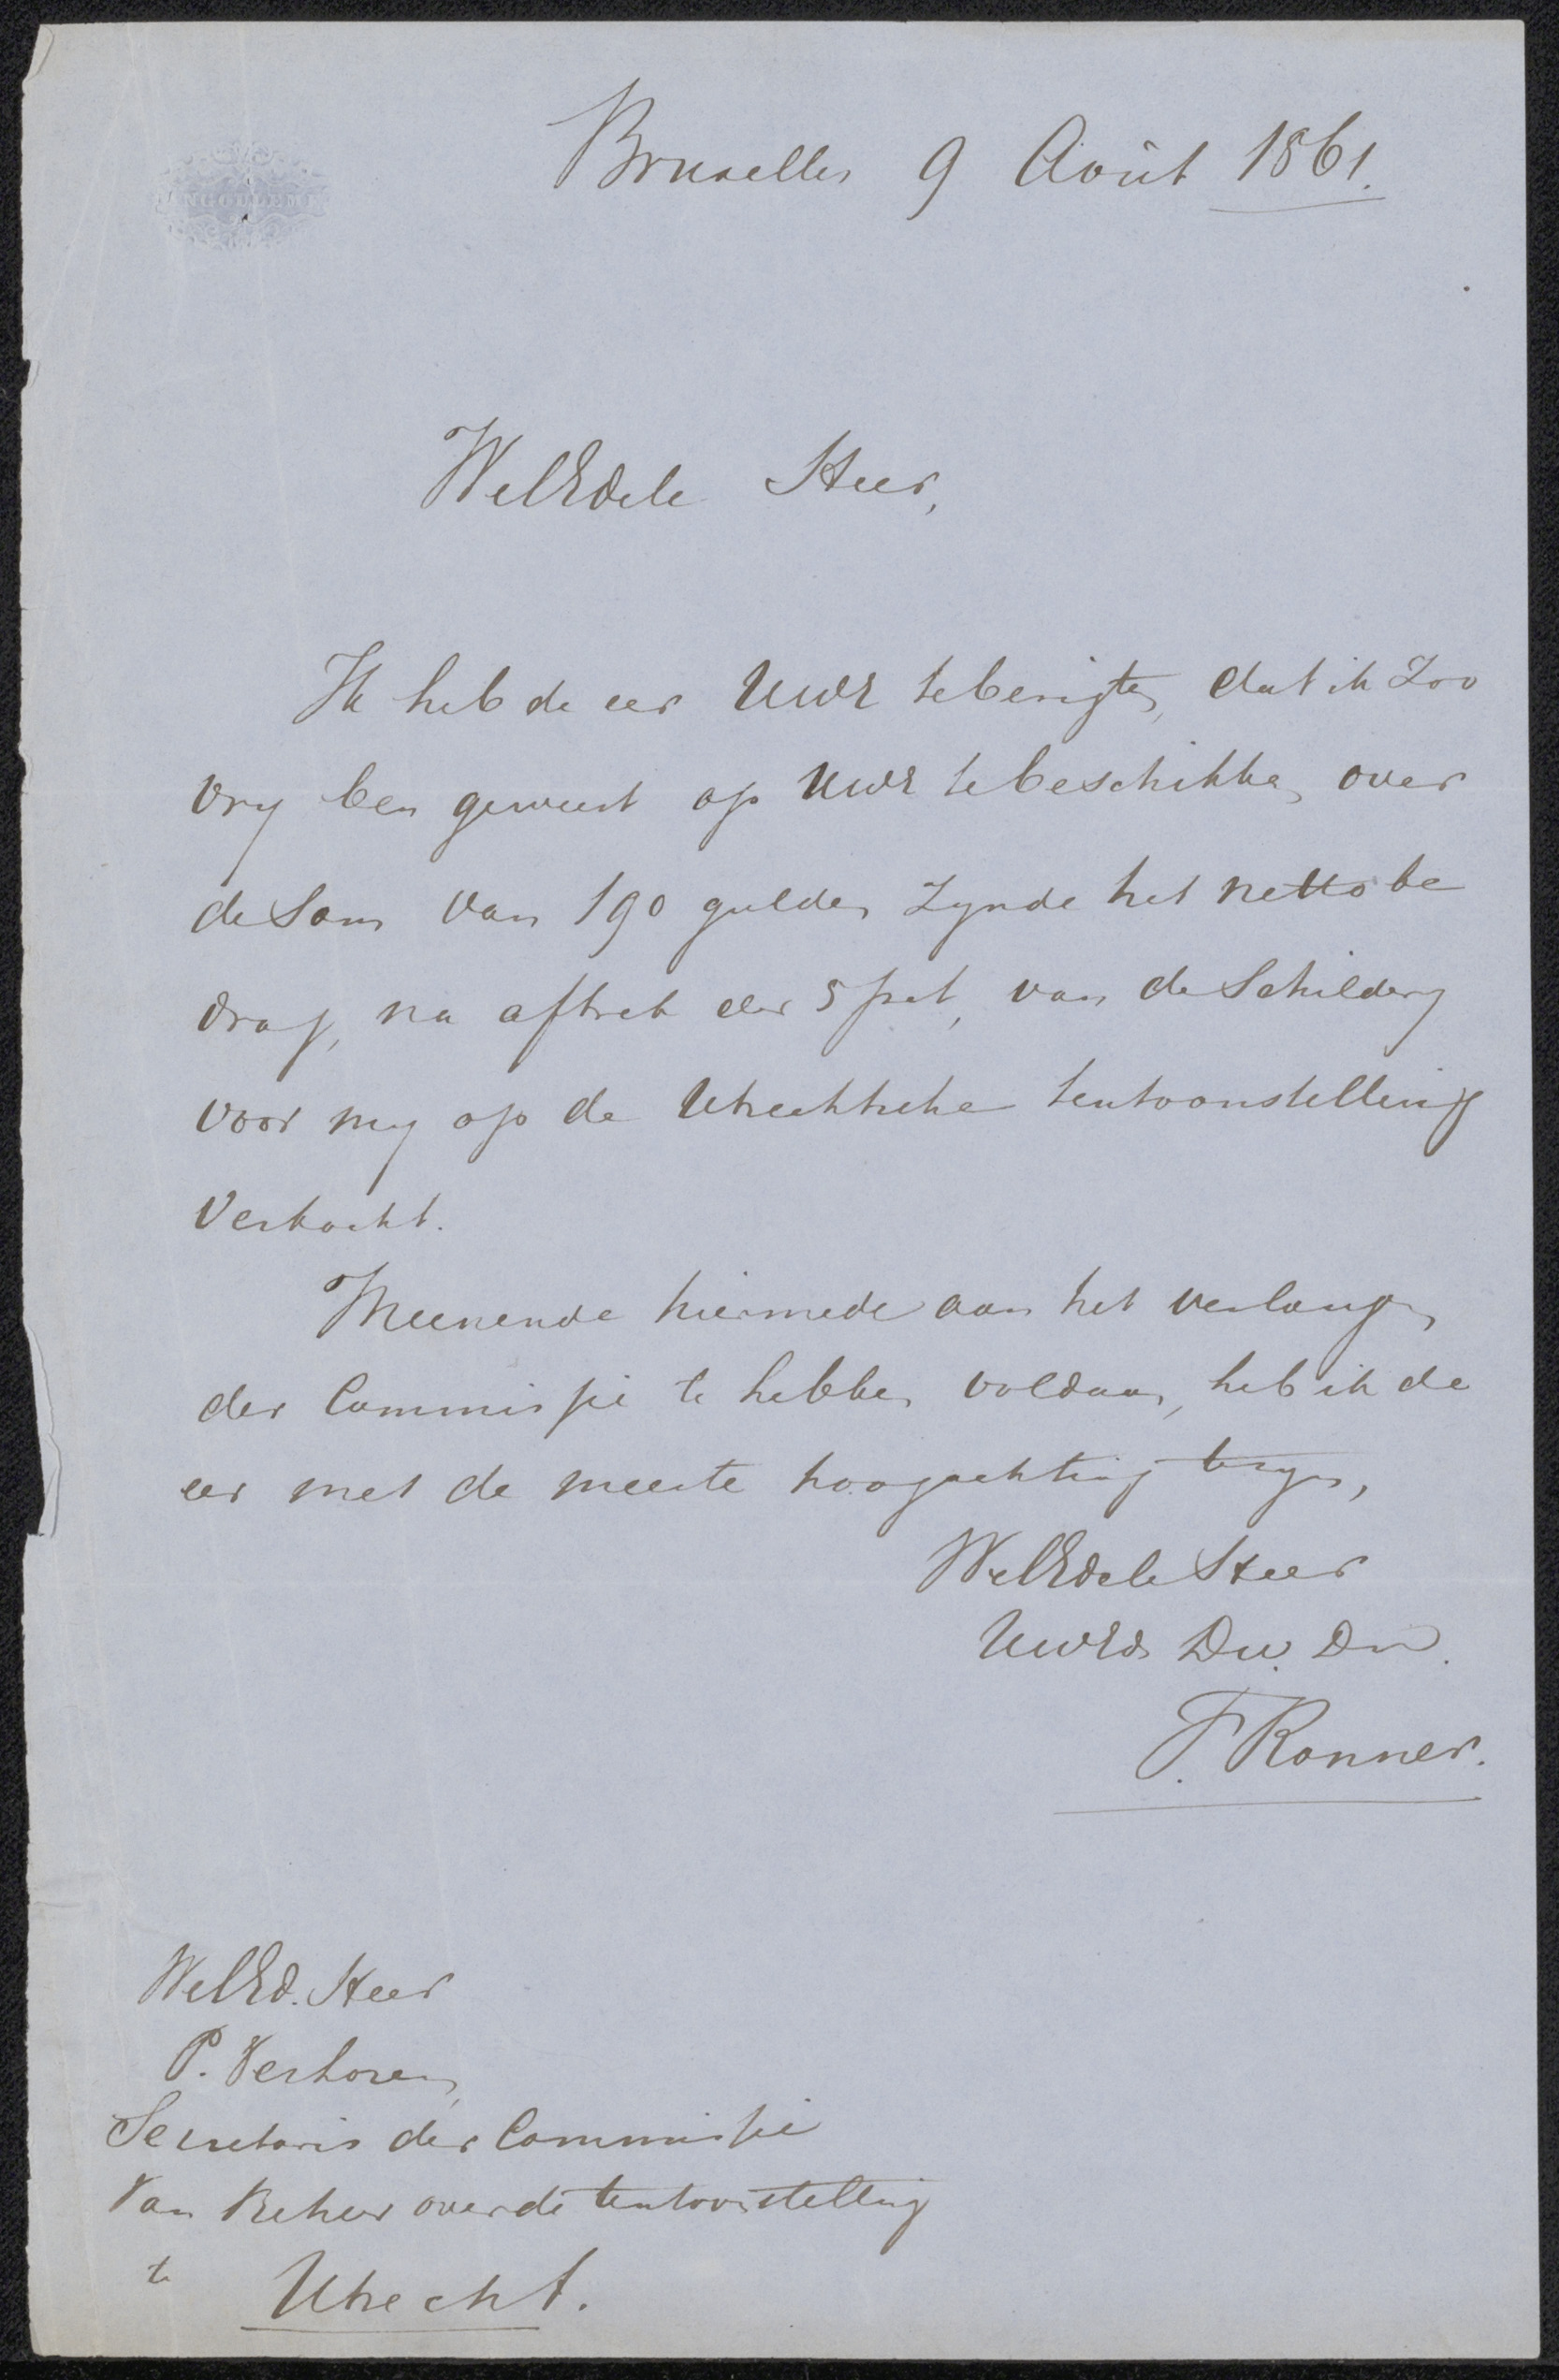 ANGOULEME
Bruxelles 9 Août 1861.
WelEdele Heer,
Ik heb de eer UWE te berigten, dat ik zoo
vry ben geweest op UWE te beschikken over
de Som van 190 gulden zynde het netto be
drag, na aftrek der 5 pct, van de Schildery
voor my op de Utrechtsche tentoonstelling
verkocht.
Meenende hiermede aan het verlangen
der Commissie te hebben voldaan, heb ik de
eer met de meeste hoogachting te zyn,
WelEdele Heer
UWEds Dw. Dn.
F. Ronner.
WelEd. Heer
P. Verloren,
Secretaris der Commissie
van Beheer over de tentoonstelling
te Utrecht.